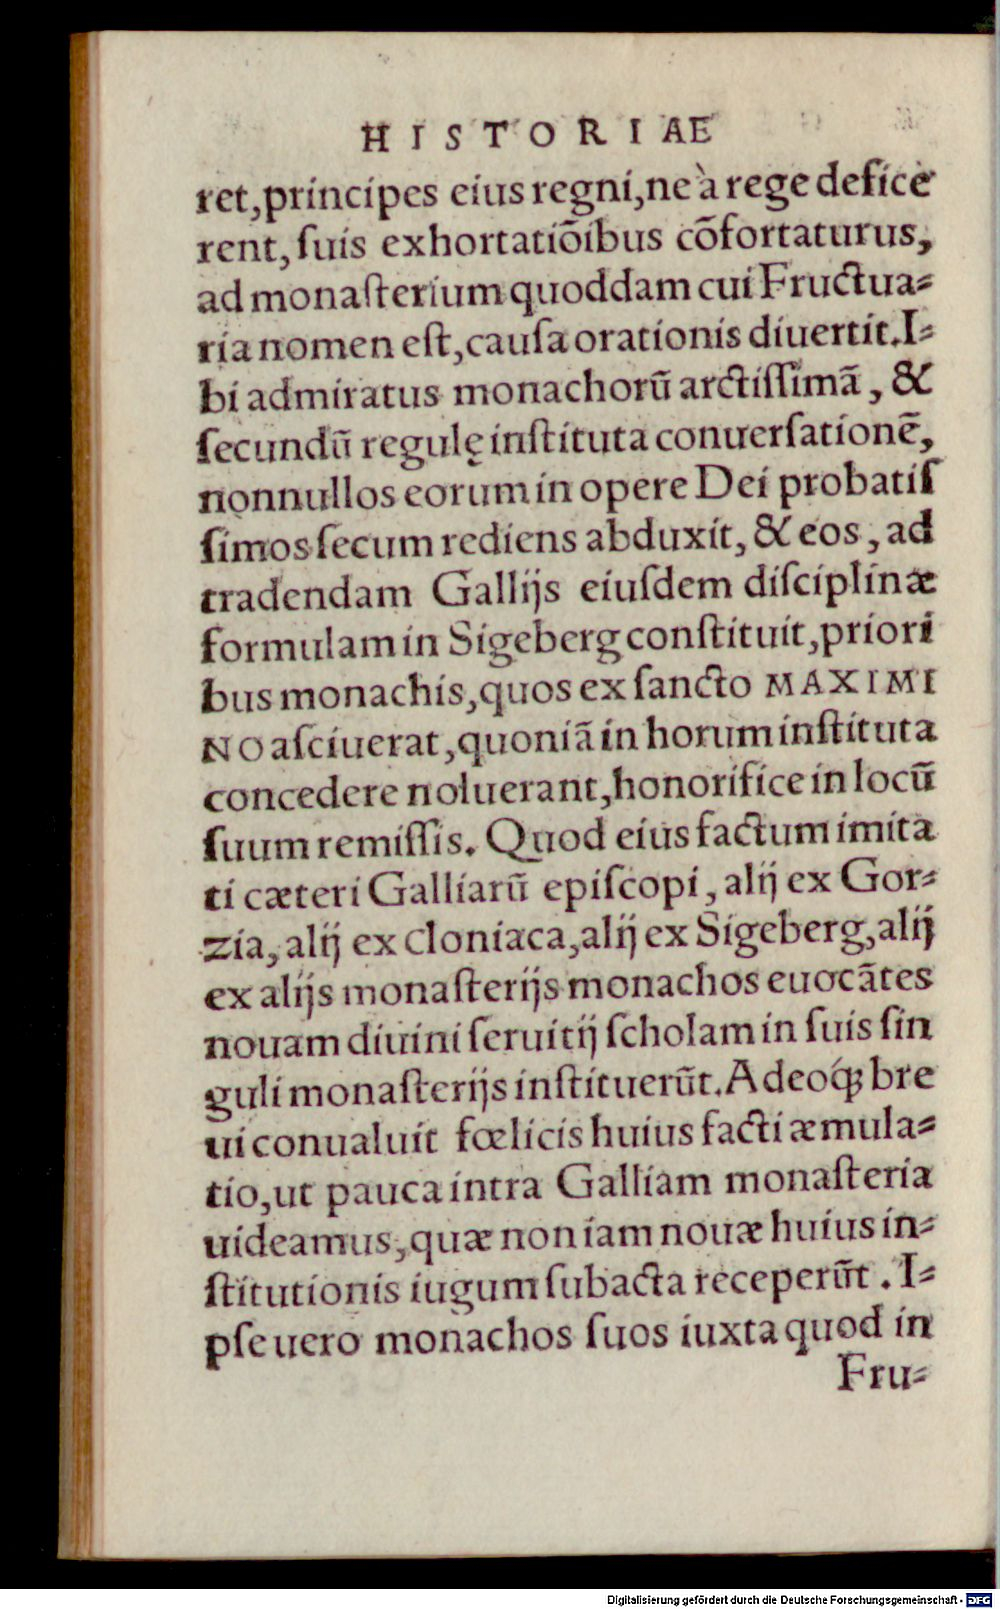 HISTORIAE
ret, principes eius regni, ne à rege defice
rent, ſuis exhortatiõibus cõfortaturus,
ad monaſterium quoddam cui Fructua⸗
ria nomen eſt, cauſa orationis diuertit. I⸗
bi admiratus monachorũ arctiſſimã, &
ſecundũ regulę inſtituta conuerſationẽ,
nonnullos eorum in opere Dei probatiſ
ſimos ſecum rediens abduxit, & eos, ad
tradendam Gallijs eiuſdem diſciplinæ
formulam in Sigeberg conſtituit, priori
bus monachis, quos ex ſancto MAXIMI
NO aſciuerat, quoniã in horum inſtituta
concedere noluerant, honorifice in locũ
ſuum remiſſis. Quod eius factum imita
ti cæteri Galliarũ epiſcopi, alij ex Gor⸗
zia, alij ex Cloniaca, alij ex Sigeberg, alij
ex alijs monaſterijs monachos euocãtes
nouam diuini ſeruitij ſcholam in ſuis ſin
guli monaſterijs inſtituerũt. Adeoq́; bre
ui conualuit fœlicis huius facti æmula⸗
tio, ut pauca intra Galliam monaſteria
uideamus, quæ non iam nouæ huius in⸗
ſtitutionis iugum ſubacta receperũt. I⸗
pſe uero monachos ſuos iuxta quod in
Fru⸗
Digitalisierung gefördert durch die Deutsche Forschungsgemeinschaft - DFG